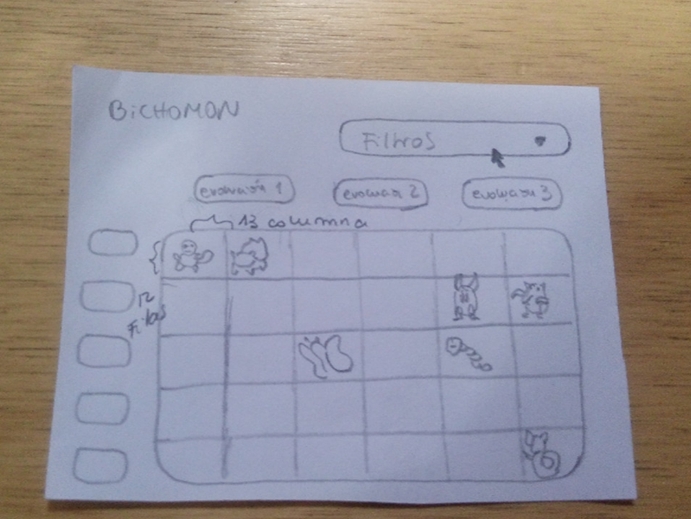 BiCHOMON
Filtros
evolución 1
evolucion 2
evolución 3
13 columna
12
Filas